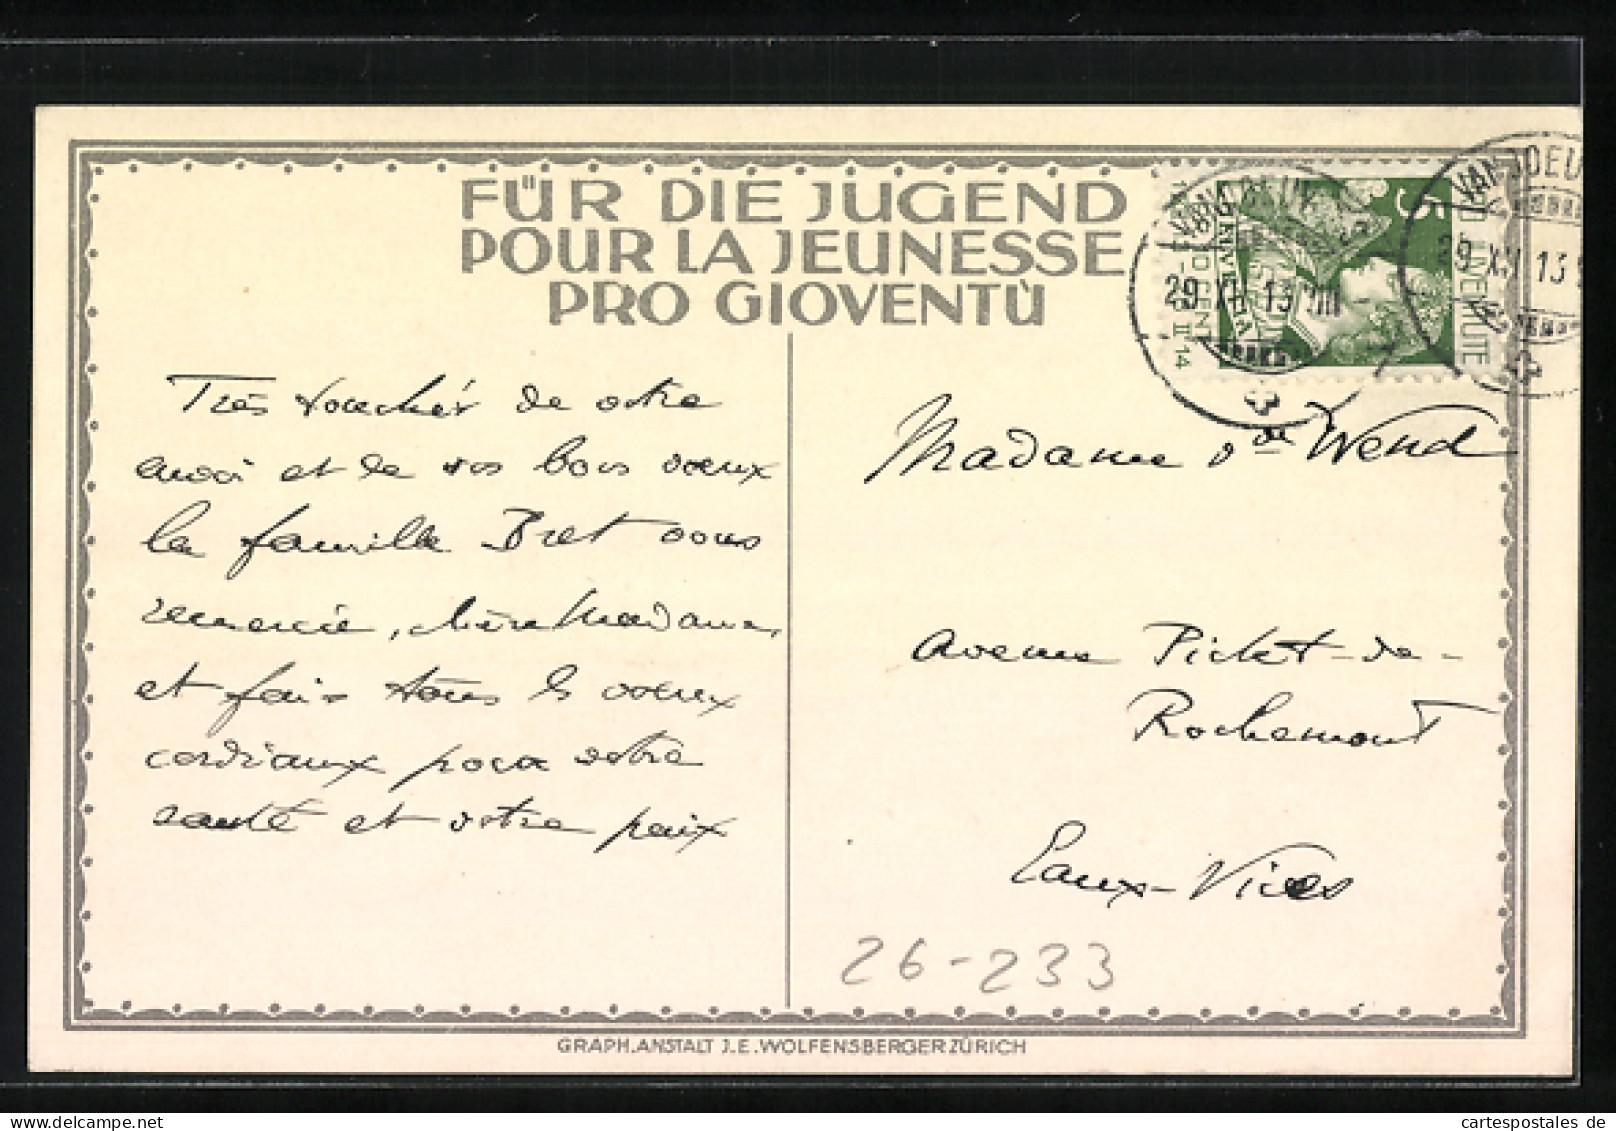 FÜR DIE JUGEND
POUR LA JEUNESSE
PRO GIOVENTÙ
Très touchés de votre
envoi et de vos bons vœux
la famille Bret vous
remercie, chère Madame,
et fais tous les vœux
cordiaux pour votre
santé et votre paix
Madame de Wend
Avenue Pictet-de-
Rochemont
Eaux-Vives
26-233
5
HELVETIA
VANDOEUV
29 XII 13 VIII
VANDOEU
29 XII 13
GRAPH.ANSTALT J.E.WOLFENSBERGER ZÜRICH
cartespostales.de